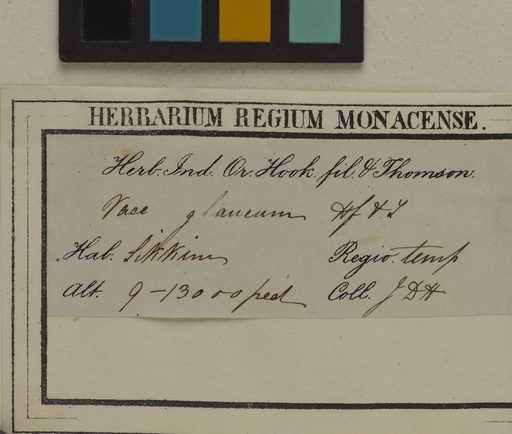 HERBARIUM REGIUM MONACENSE.
Herb. Ind. Or. Hook. fil. & Thomson.
Vacc glaucum Hf & T
Hab. Sikkim Regio. temp
Alt. 9-13000 ped Coll. JDH